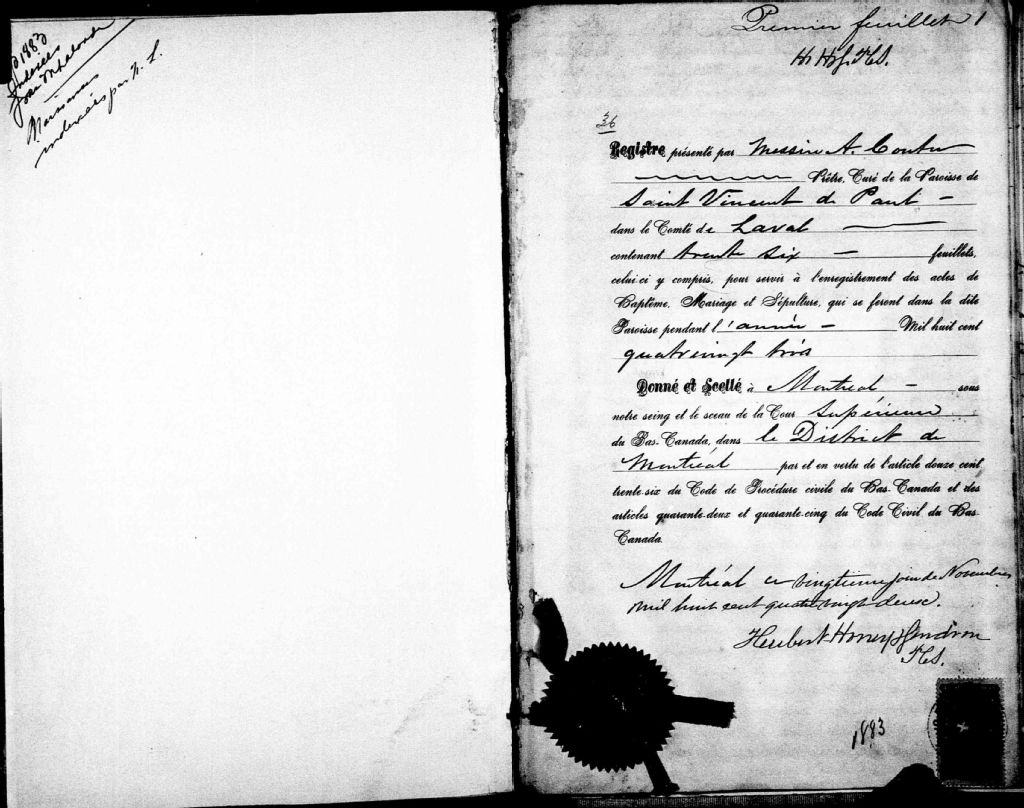 1883
Indexées
Naissances
indexées par N. L.
Premier feuillet 1
H H & G. P.C.S.
36
Registre présenté par Messire A. Coutu
Prêtre, Curé de la Paroisse de
Saint Vincent de Paul –
dans le Comté de Laval —
contenant trente six — feuillets,
celui-ci y compris, pour servir à l'enregistrement des actes de
Baptême, Mariage et Sépulture, qui se feront dans la dite
Paroisse pendant l'année – Mil huit cent
quatrevingt trois
Donné et Scellé à Montreal – sous
notre seing et le sceau de la Cour Supérieure
du Bas-Canada, dans le District de
Montréal par et en vertu de l'article douze cent
trente-six du Code de Procédure civile du Bas-Canada et des
articles quarante-deux et quarante-cinq du Code Civil du Bas-
Canada.
Montréal ce vingtieme jour de Novembre
mil huit cent quatre vingt deux.
Honey & Gendron
P.C.S.
1883